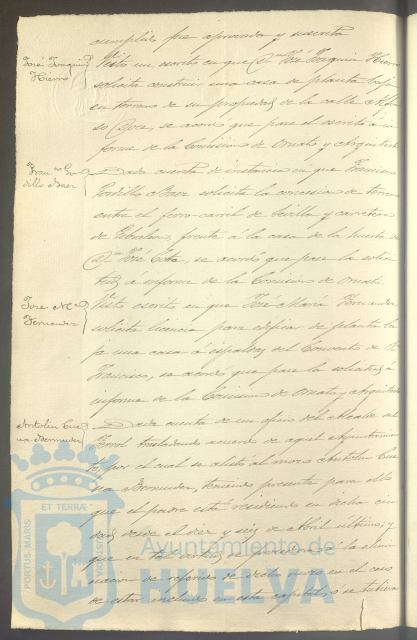 cumplió fue aprovada y suscrita
José Joaquín
Hierro
Visto un escrito en que Dn José Joaquín Hierro
solicita construir una casa de planta baja
en terreno de su propiedad de la calle
se acordó que pase el escrito á in
forme de la Comisión de Ornato y Arquitecto
Franco Go
dillo Baez
Dada cuenta de instancia en que Francisco
Gordillo Baez solicita la concesión de terreno
entre el ferro-carril de Sevilla y carretera
de Gibraleon, frente á la casa de la huerta de
Dn José Coto, se acordó que pase la solici
tud á informe de la Comisión de Ornato.
José Ma
Fernandez
Visto escrito en que José María Fernandez
solicita licencia para edificar de planta ba
ja una casa á espaldas del Convento de Sn
Francisco, se acordó que pase la solicitud á
informe de la Comisión de Ornato y Arquitecto
Antolin Cue
va Bermudez
Dada cuenta de un oficio del Alcalde del
Ferrol trasladando acuerdo de aquel Ayuntamien
to, por el cual se alistó al mozo Antolin Cue
va Bermudez, teniendo presente para ello
que el padre está residiendo en dicha ciu
dad desde el diez y seis de Abril último; y
que en tal
de dicho mozo en el caso
de estar incluido en esta capital, ó se
PORTUS MARIS ET TERRÆ CUSTODIA
Ayuntamiento de
HUELVA